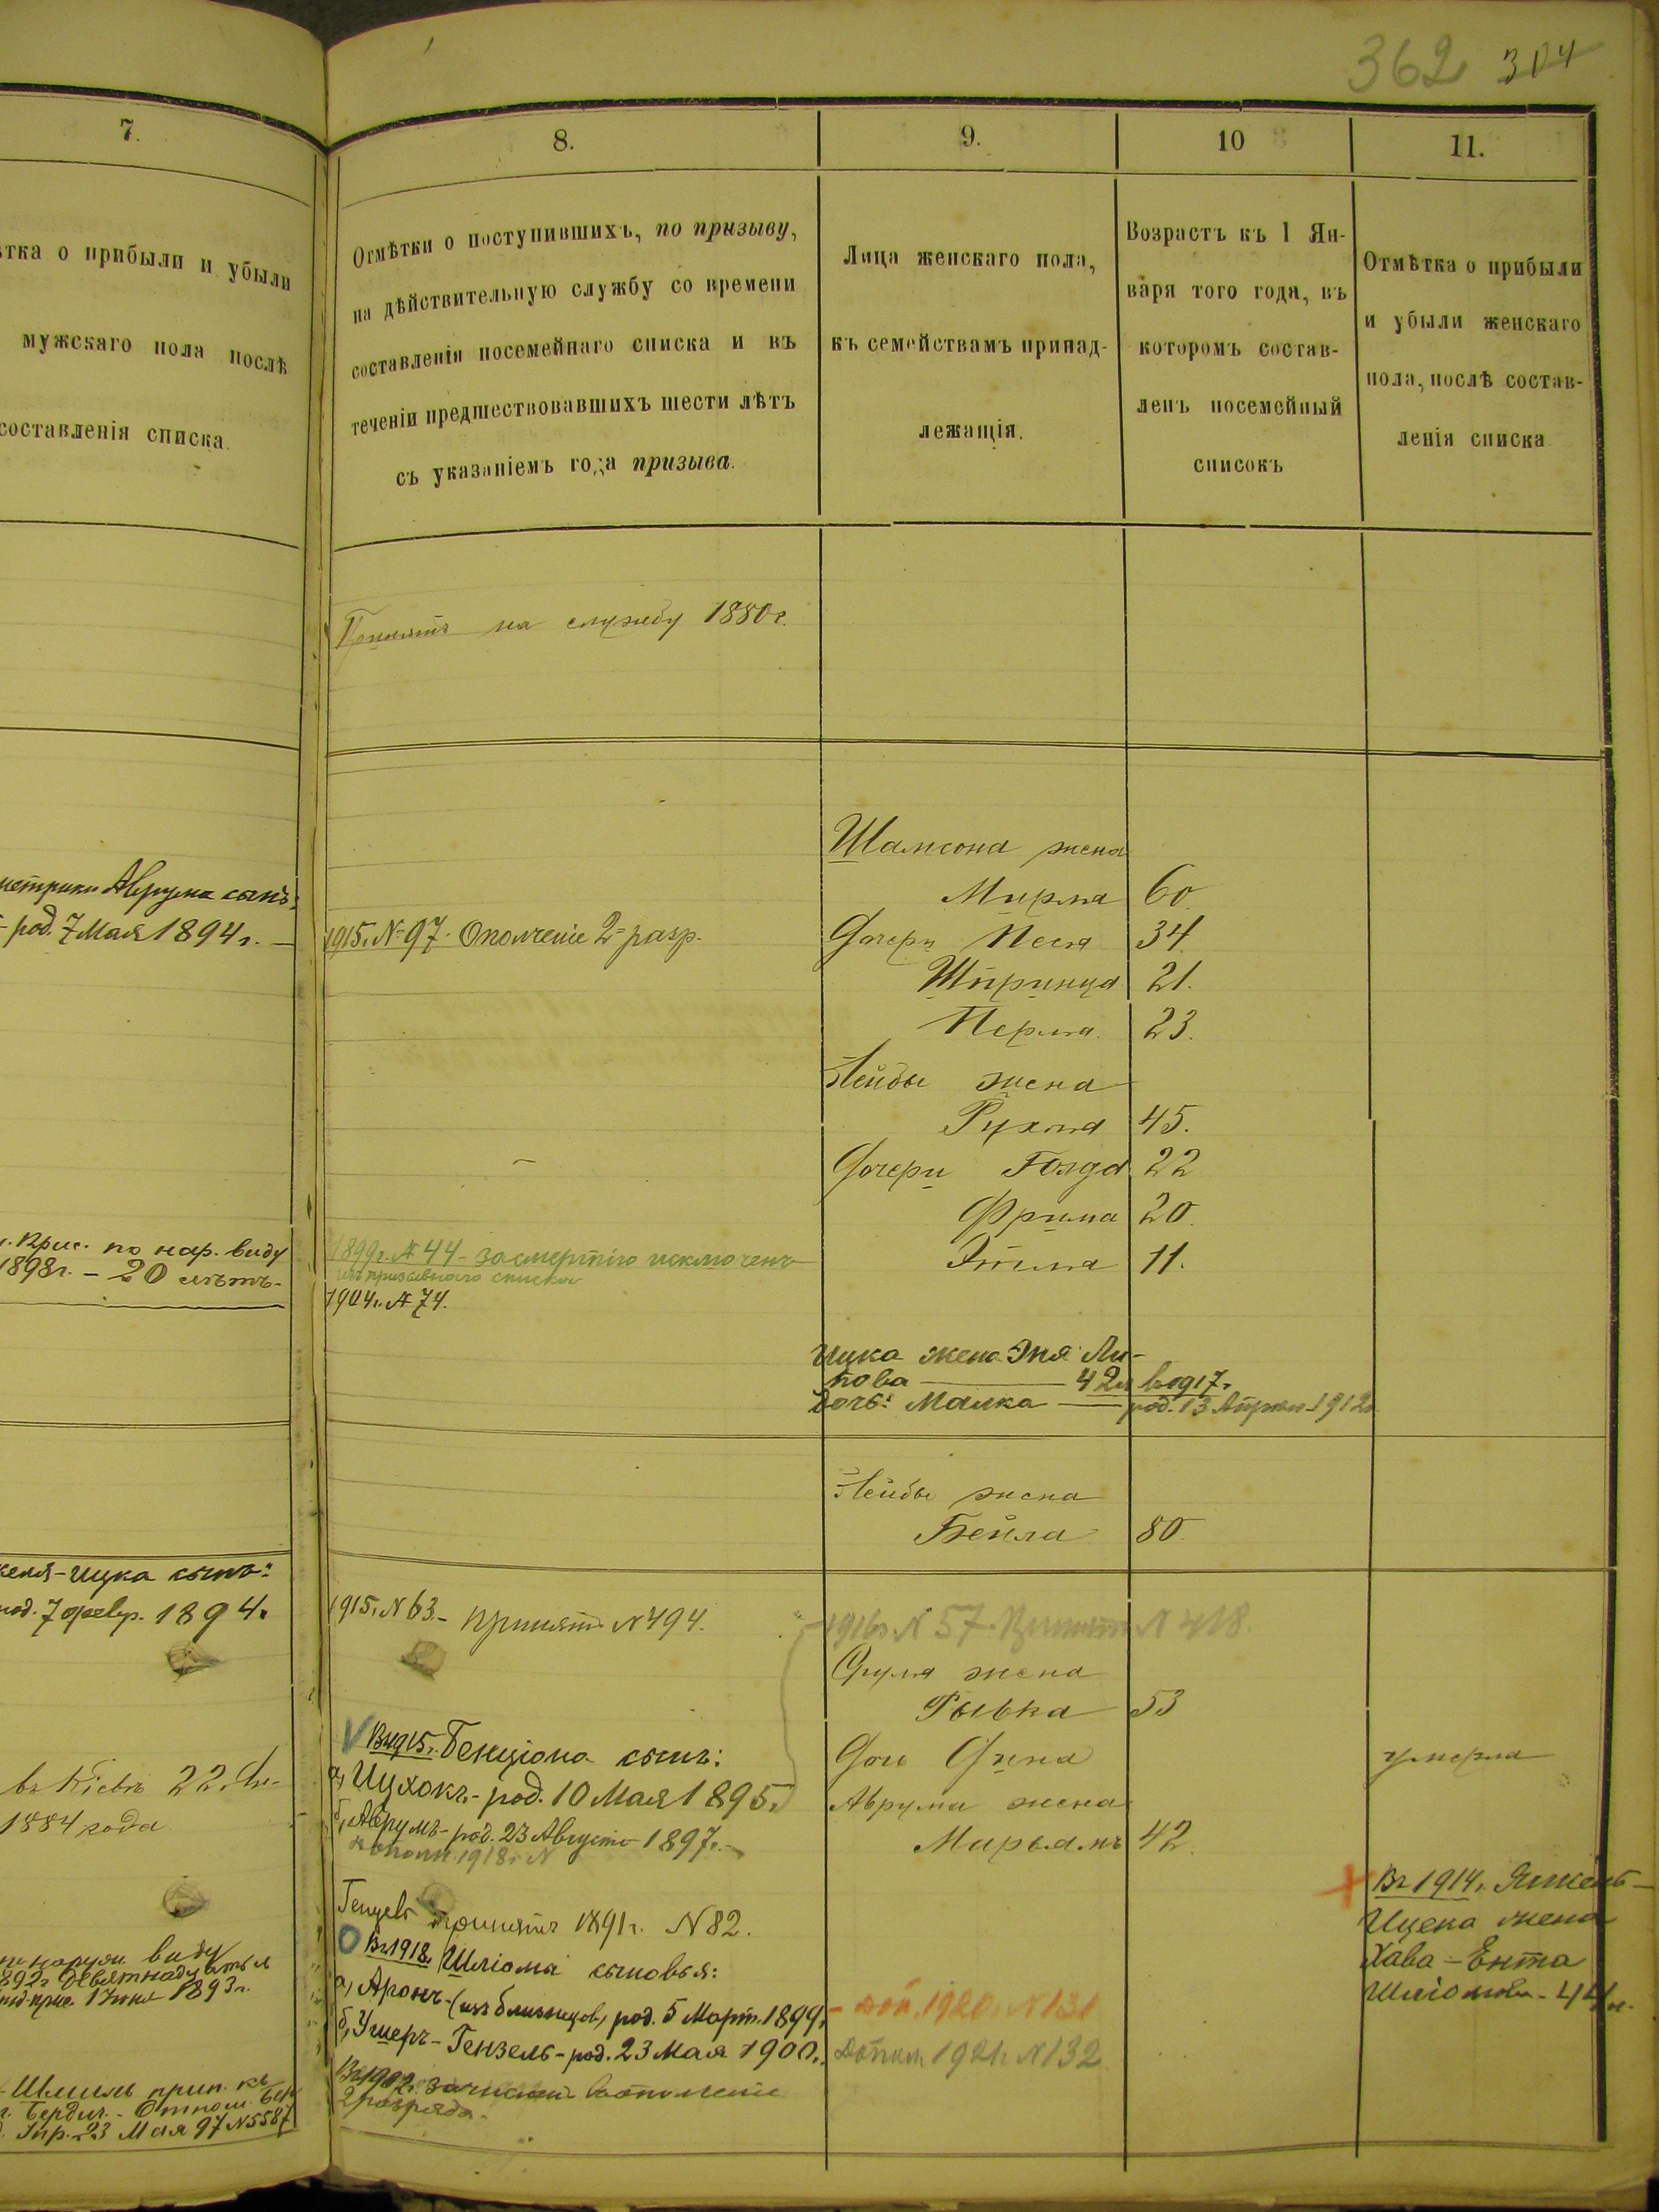 362 304
7.
8.
9.
10
11.
тка о прибыли и убыли
мужскаго пола послѣ
составленія списка.
Отмѣтки о поступившихъ, по призыву,
на дѣйствительную службу со времени
составленія посемейнаго списка и въ
теченіи предшествовавшихъ шести лѣтъ
съ указаніемъ года призыва.
Лица женскаго пола,
къ семействамъ принад-
лежащія.
Возрастъ къ 1 Ян-
варя того года, въ
которомъ состав-
ленъ посемейный
списокъ
Отмѣтка о прибыли
и убыли женскаго
пола, послѣ состав-
ленія списка
Принятъ на службу 1880 г.
Шамсона жена
Мирля 60
метрики Аврума сынъ:
- род. 7 Мая 1894 г. —
1915 г. № 97. Ополченіе 2 разр.
Дочери Песя 34
Шпринца 21.
Перля 23.
Лейбы жена
Рухля 45.
Дочери Голда 22
Фрима 20.
Этля 11.
по нар. виду
1898 г. – 20 лѣтъ.
1899 г. № 44 – за смертію исключенъ
изъ призывнаго списка
1904 г. № 74.
Ицка жена Эня Ли-
пова — 42 л. въ 1917 г.
дочь: Малка — род. 13 Апрѣля 1912 г.
Лейбы жена
Бейла 80.
Ицка сынъ:
род. 7 февр. 1894 г.
1915 г. № 63 – принятъ № 494.
1916 г. № 57. Принятъ № 418.
Сруля жена
Рывка 53
V Въ 1915 г. Бенціона сынъ:
а, Ицхокъ, – род. 10 Мая 1895 г.
б, Аврумъ – род. 23 Августа 1897 г. –
1918 г. №
Дочь Дина умерла
Аврума жена
Марьямъ 42.
въ Кіевѣ 22.
1884 года
принятъ 1891 г. № 82.
О Въ 1918 г. Шліомы сыновья:
а, Аронъ – (изъ близнецов), род. 5 Март. 1899 г.
– доп. 1920 г. № 131
б, Ушеръ – Гензель – род. 23 Мая 1900 г.
Дополн. 1921 г. № 132
Въ 1902 г. зачисленъ въ ополченіе
2 разряда.
+ Въ 1914 г. Янкель –
Ицека жена
Хава – Ента
Шліомова – 44 л.
по наруж. виду
1892 г. девятнадцать л
1 Июня 1893 г.
Шмиль прип. къ
Бердич. – Отнош.
23 Мая 97 № 5587